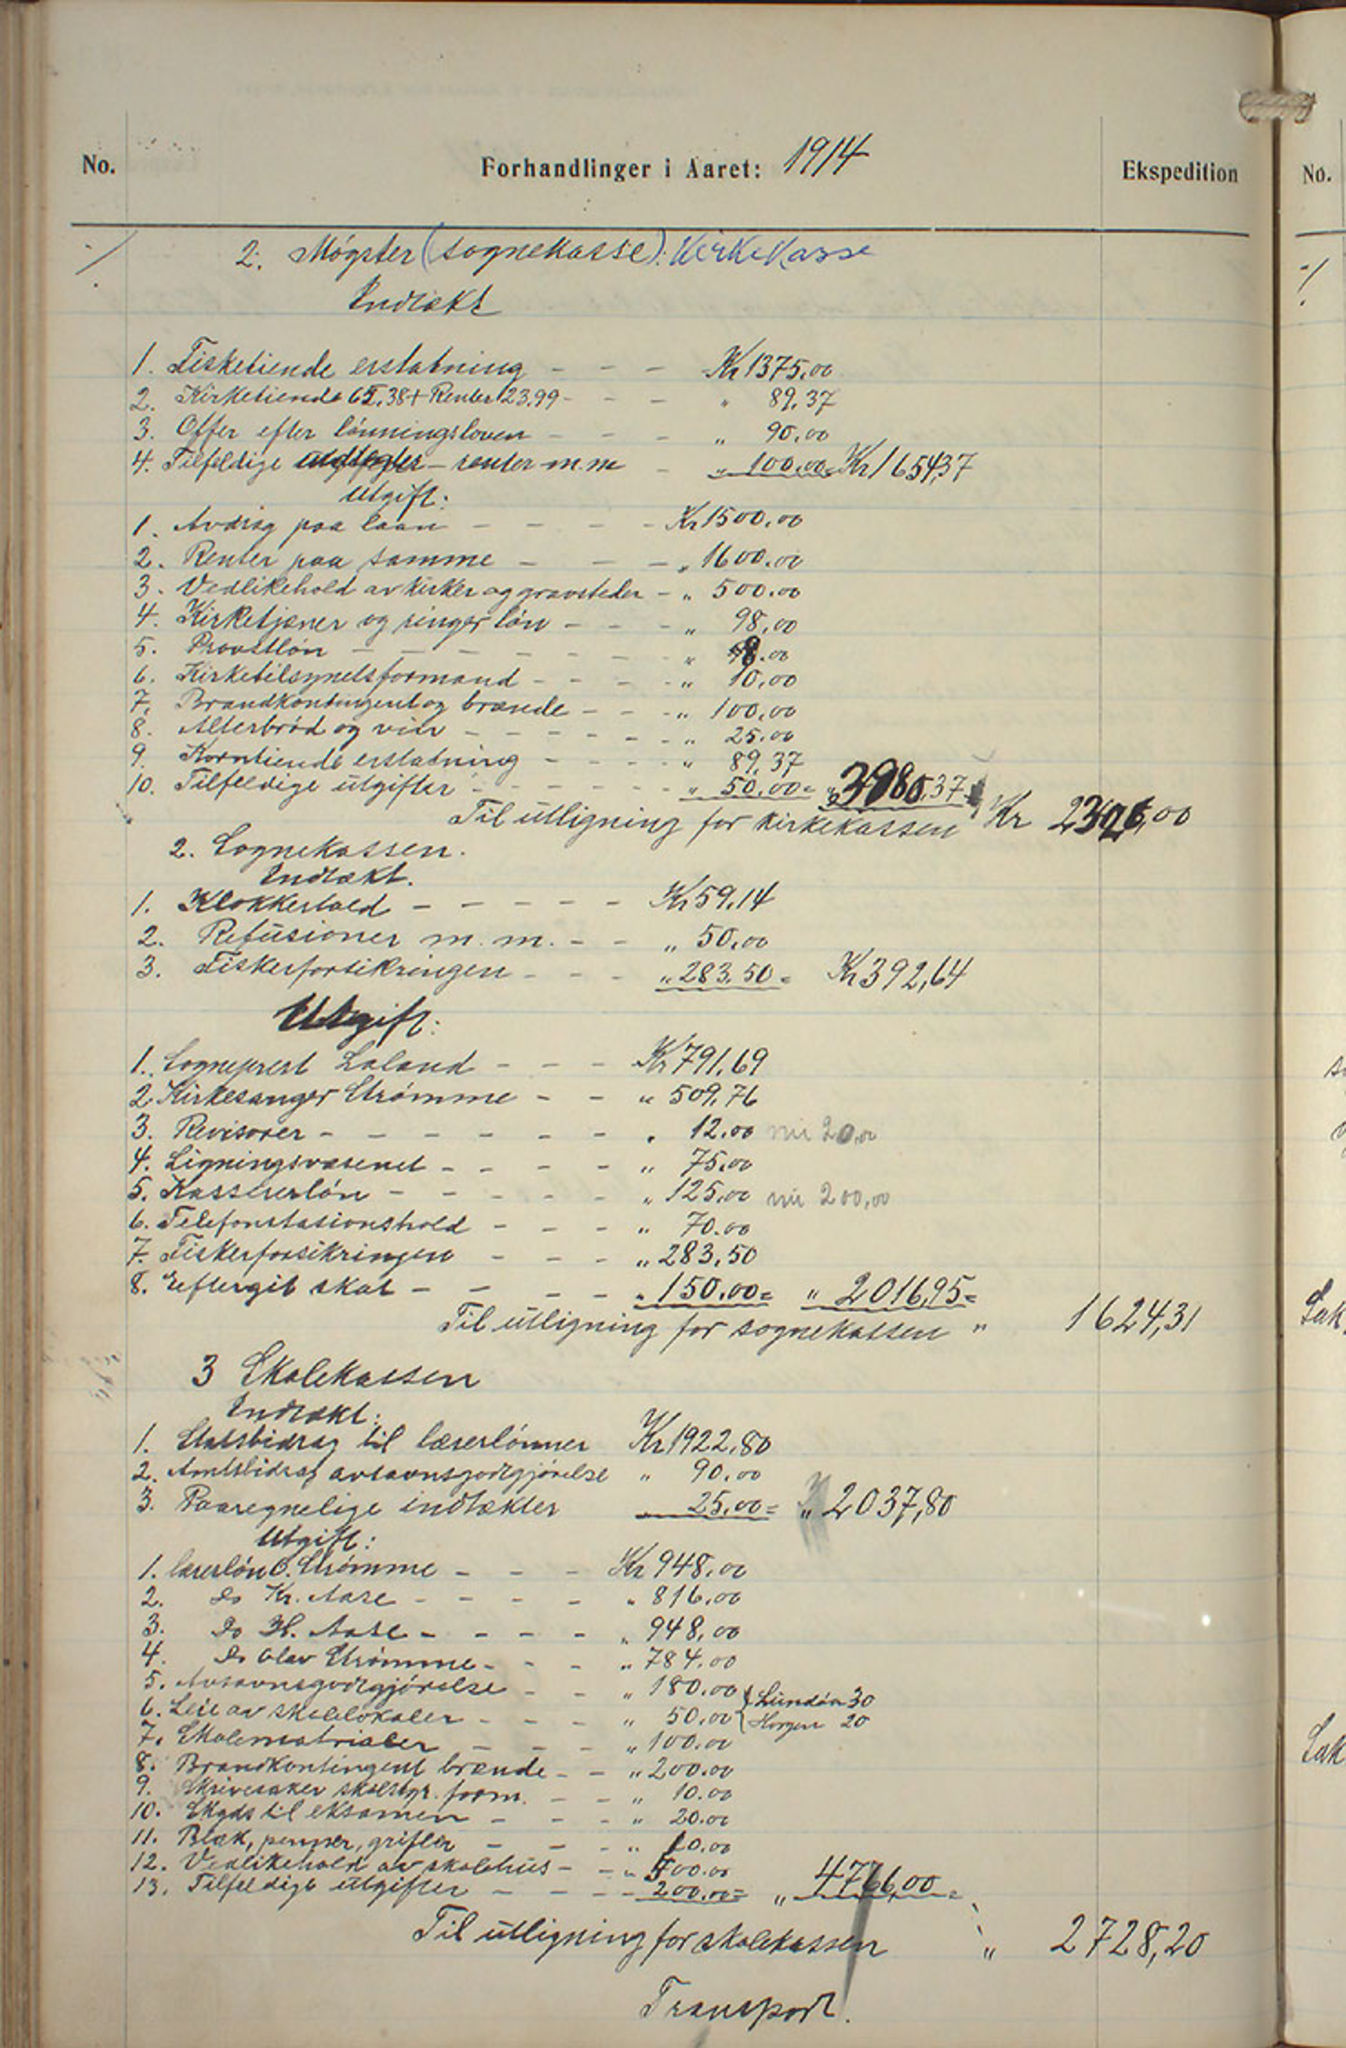 No. Forhandlinger i Aaret: 1914 Ekspedition No.
2. Møgster (sognekasse): Kirkekasse
Indtækt
1. Fisketiende erstatning - - - Kr 1375,00
2. Kirketiende 65,38 + Renter 23.99 - - - " 89,37
3. Offer efter lønningsloven - - - " 90,00
4. Tilfeldige - renter m.m - " 100,00 = Kr 1654,37
Utgift:
1. Avdrag paa laan - - - - Kr 1500,00
2. Renter paa samme - - - " 1600,00
3. Vedlikehold av kirker og gravsteder - " 500,00
4. Kirketjener og ringer løn - - - " 98,00
5. Provstløn - - - - - - " 8.00
6. Kirketilsynetsformand - - - - " 10,00
7. Brandkontingent og brænde - - - " 100,00
8. Alterbrød og vin - - - - - - " 25.00
9. Korntiende erstatning - - - - " 89,37
10. Tilfeldige utgifter - - - - - - " 50.00 = " 3980,37
Til utligning for kirkekassen Kr 2326,00
2. Sognekassen.
Indtækt.
1. Klokkertold - - - - - Kr 59,14
2. Refusioner m.m. - - " 50,00
3. Fiskerforsikringen - - - " 283,50 = Kr 392,64
Utgift:
1. Sogneprest Laland - - - Kr 791,69
2. Kirkesanger Strømme - - " 509,76
3. Revisorer - - - - - - " 12.00 20,00
4. Ligningsvæsenet - - - - " 75,00
5. Kassererløn - - - - - " 125,00 200,00
6. Telefonstasionshold - - - " 70.00
7. Fiskerforsikringen - - - " 283,50
8. Eftergit skat - - - - " 150.00 = " 2016,95 =
Til utligning for sognekassen " 1624,31
3 Skolekassen
Indtækt:
1. Statsbidrag til lærerlønner Kr 1922,80
2. Amtsbidrag avsavnsgodtgjørelse " 90.00
3. Paaregnelige indtækter " 25,00 = " 2037,80
Utgift:
1. Lærerløn O. Strømme - - - Kr 948,00
2. Do Kr. Aase - - - - " 816,00
3. Do H. Aase - - - - " 948,00
4. Do Olav Strømme - - - " 784.00
5. Avsavnsgodtgjørelse - - " 180.00
6. Leie av skolelokaler - - - " 50,00 { Lundøn 30 Horgen 20
7. Skolematrialer - - - " 100.00
8. Brandkontingent brænde - - " 200.00
9. Skrivesaker skolestyr. form. - - " 10.00
10. Skyds til eksamen - - - " 20.00
11. Blæk, penner, grifler - - - " 10.00
12. Vedlikehold av skolehus - - " 500.00
13. Tilfeldige utgifter - - - - 200,00 = " 4766,00 =
Til utligning for skolekassen " 2728,20
Transport.